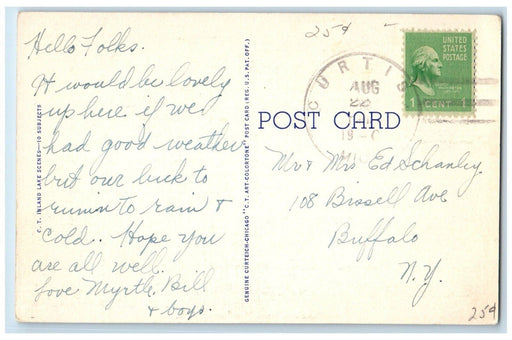 25¢
Hello Folks.
It would be lovely
up here if we
had good weather
but our luck to
runnin to rain &
cold. Hope you
are all well.
Love Myrtle, Bill
& boys.
C. T. INLAND LAKE SCENES—10 SUBJECTS
GENUINE CURTEICH-CHICAGO "C. T. ART-COLORTONE" POST CARD (REG. U. S. PAT. OFF.)
CURTIS
AUG
22
UNITED
STATES
POSTAGE
1 CENT 1
POST CARD
Mr & Mrs Ed Schanley
108 Bissell Ave
Buffalo
N.Y.
25¢